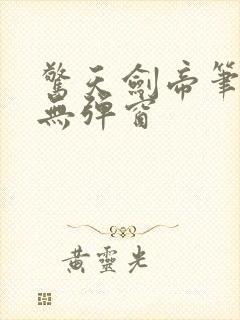 驚天劍帝筆
無彈窗
黃靈光